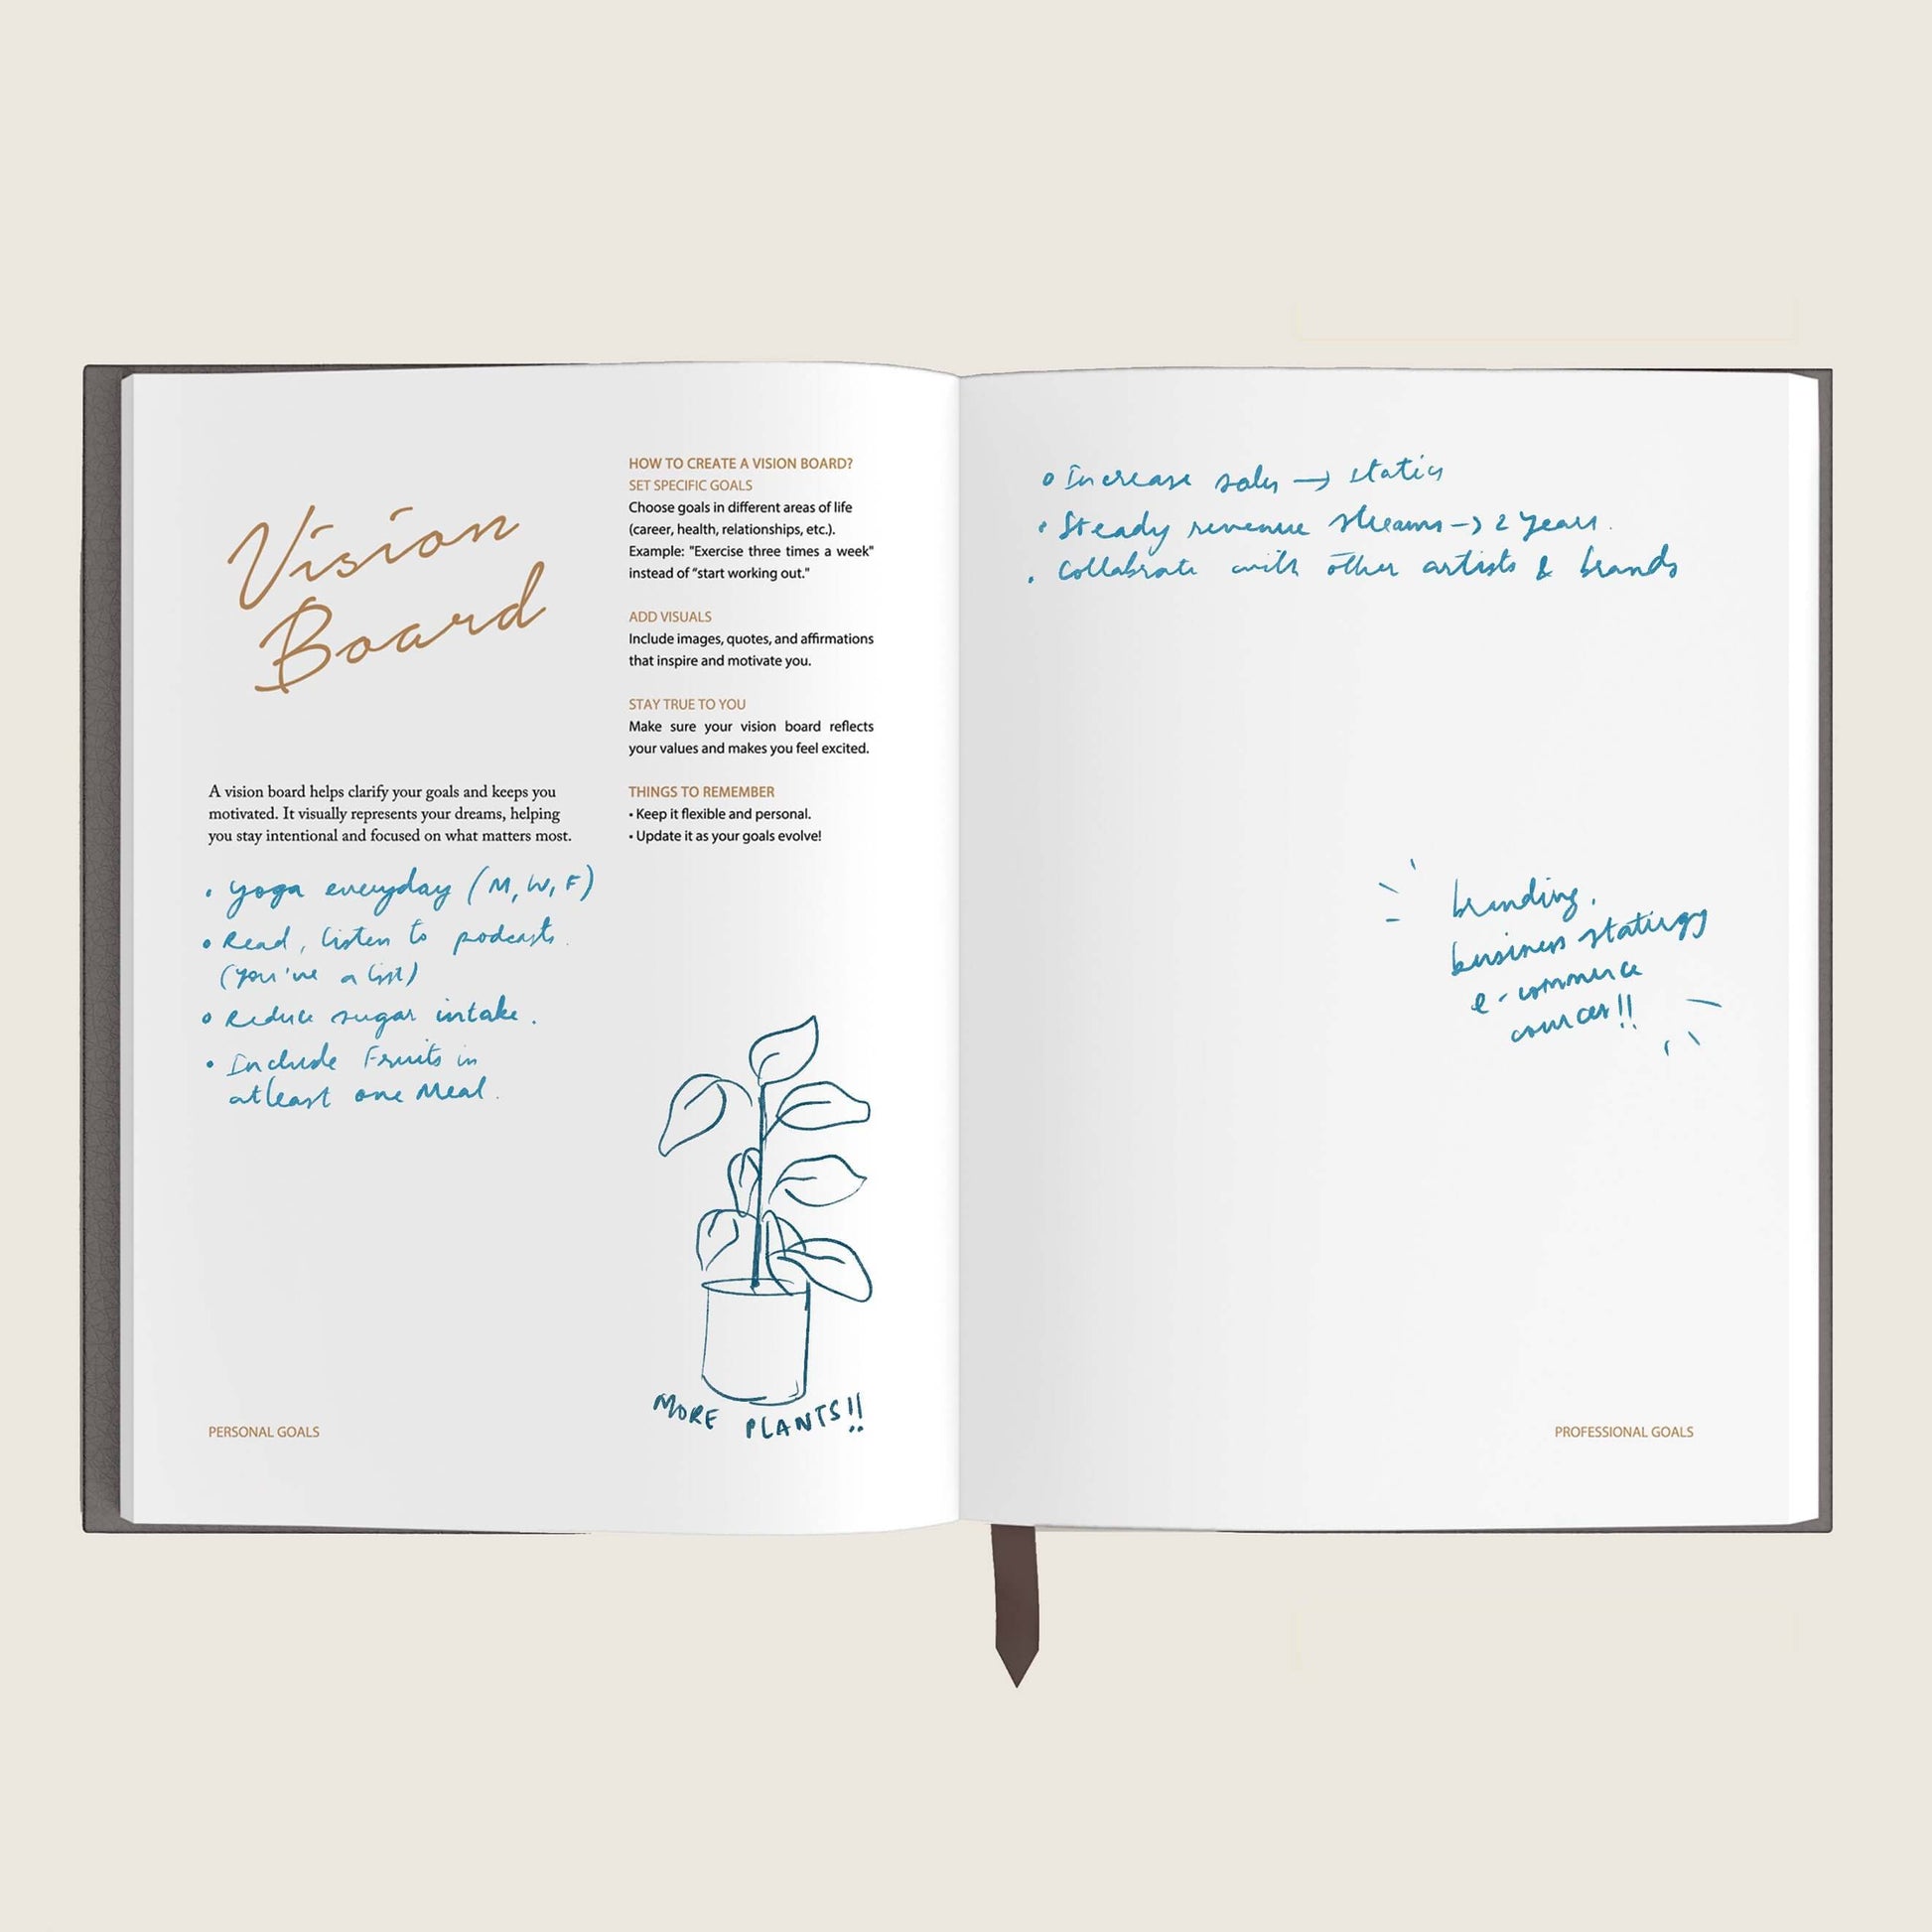 Vision
Board
A vision board helps clarify your goals and keeps you
motivated. It visually represents your dreams, helping
you stay intentional and focused on what matters most.
• yoga everyday (M, W, F)
• Read, listen to podcasts.
(you've a list)
• Reduce sugar intake.
• Include Fruits in
atleast one Meal.
PERSONAL GOALS
HOW TO CREATE A VISION BOARD?
SET SPECIFIC GOALS
Choose goals in different areas of life
(career, health, relationships, etc.).
Example: "Exercise three times a week"
instead of “start working out."
ADD VISUALS
Include images, quotes, and affirmations
that inspire and motivate you.
STAY TRUE TO YOU
Make sure your vision board reflects
your values and makes you feel excited.
THINGS TO REMEMBER
• Keep it flexible and personal.
• Update it as your goals evolve!
MORE PLANTS!!
• Increase sales →
• Steady revenue streams → 2 years.
• Collabrate with other artists & brands
branding,
business
e-commerce
!!
PROFESSIONAL GOALS